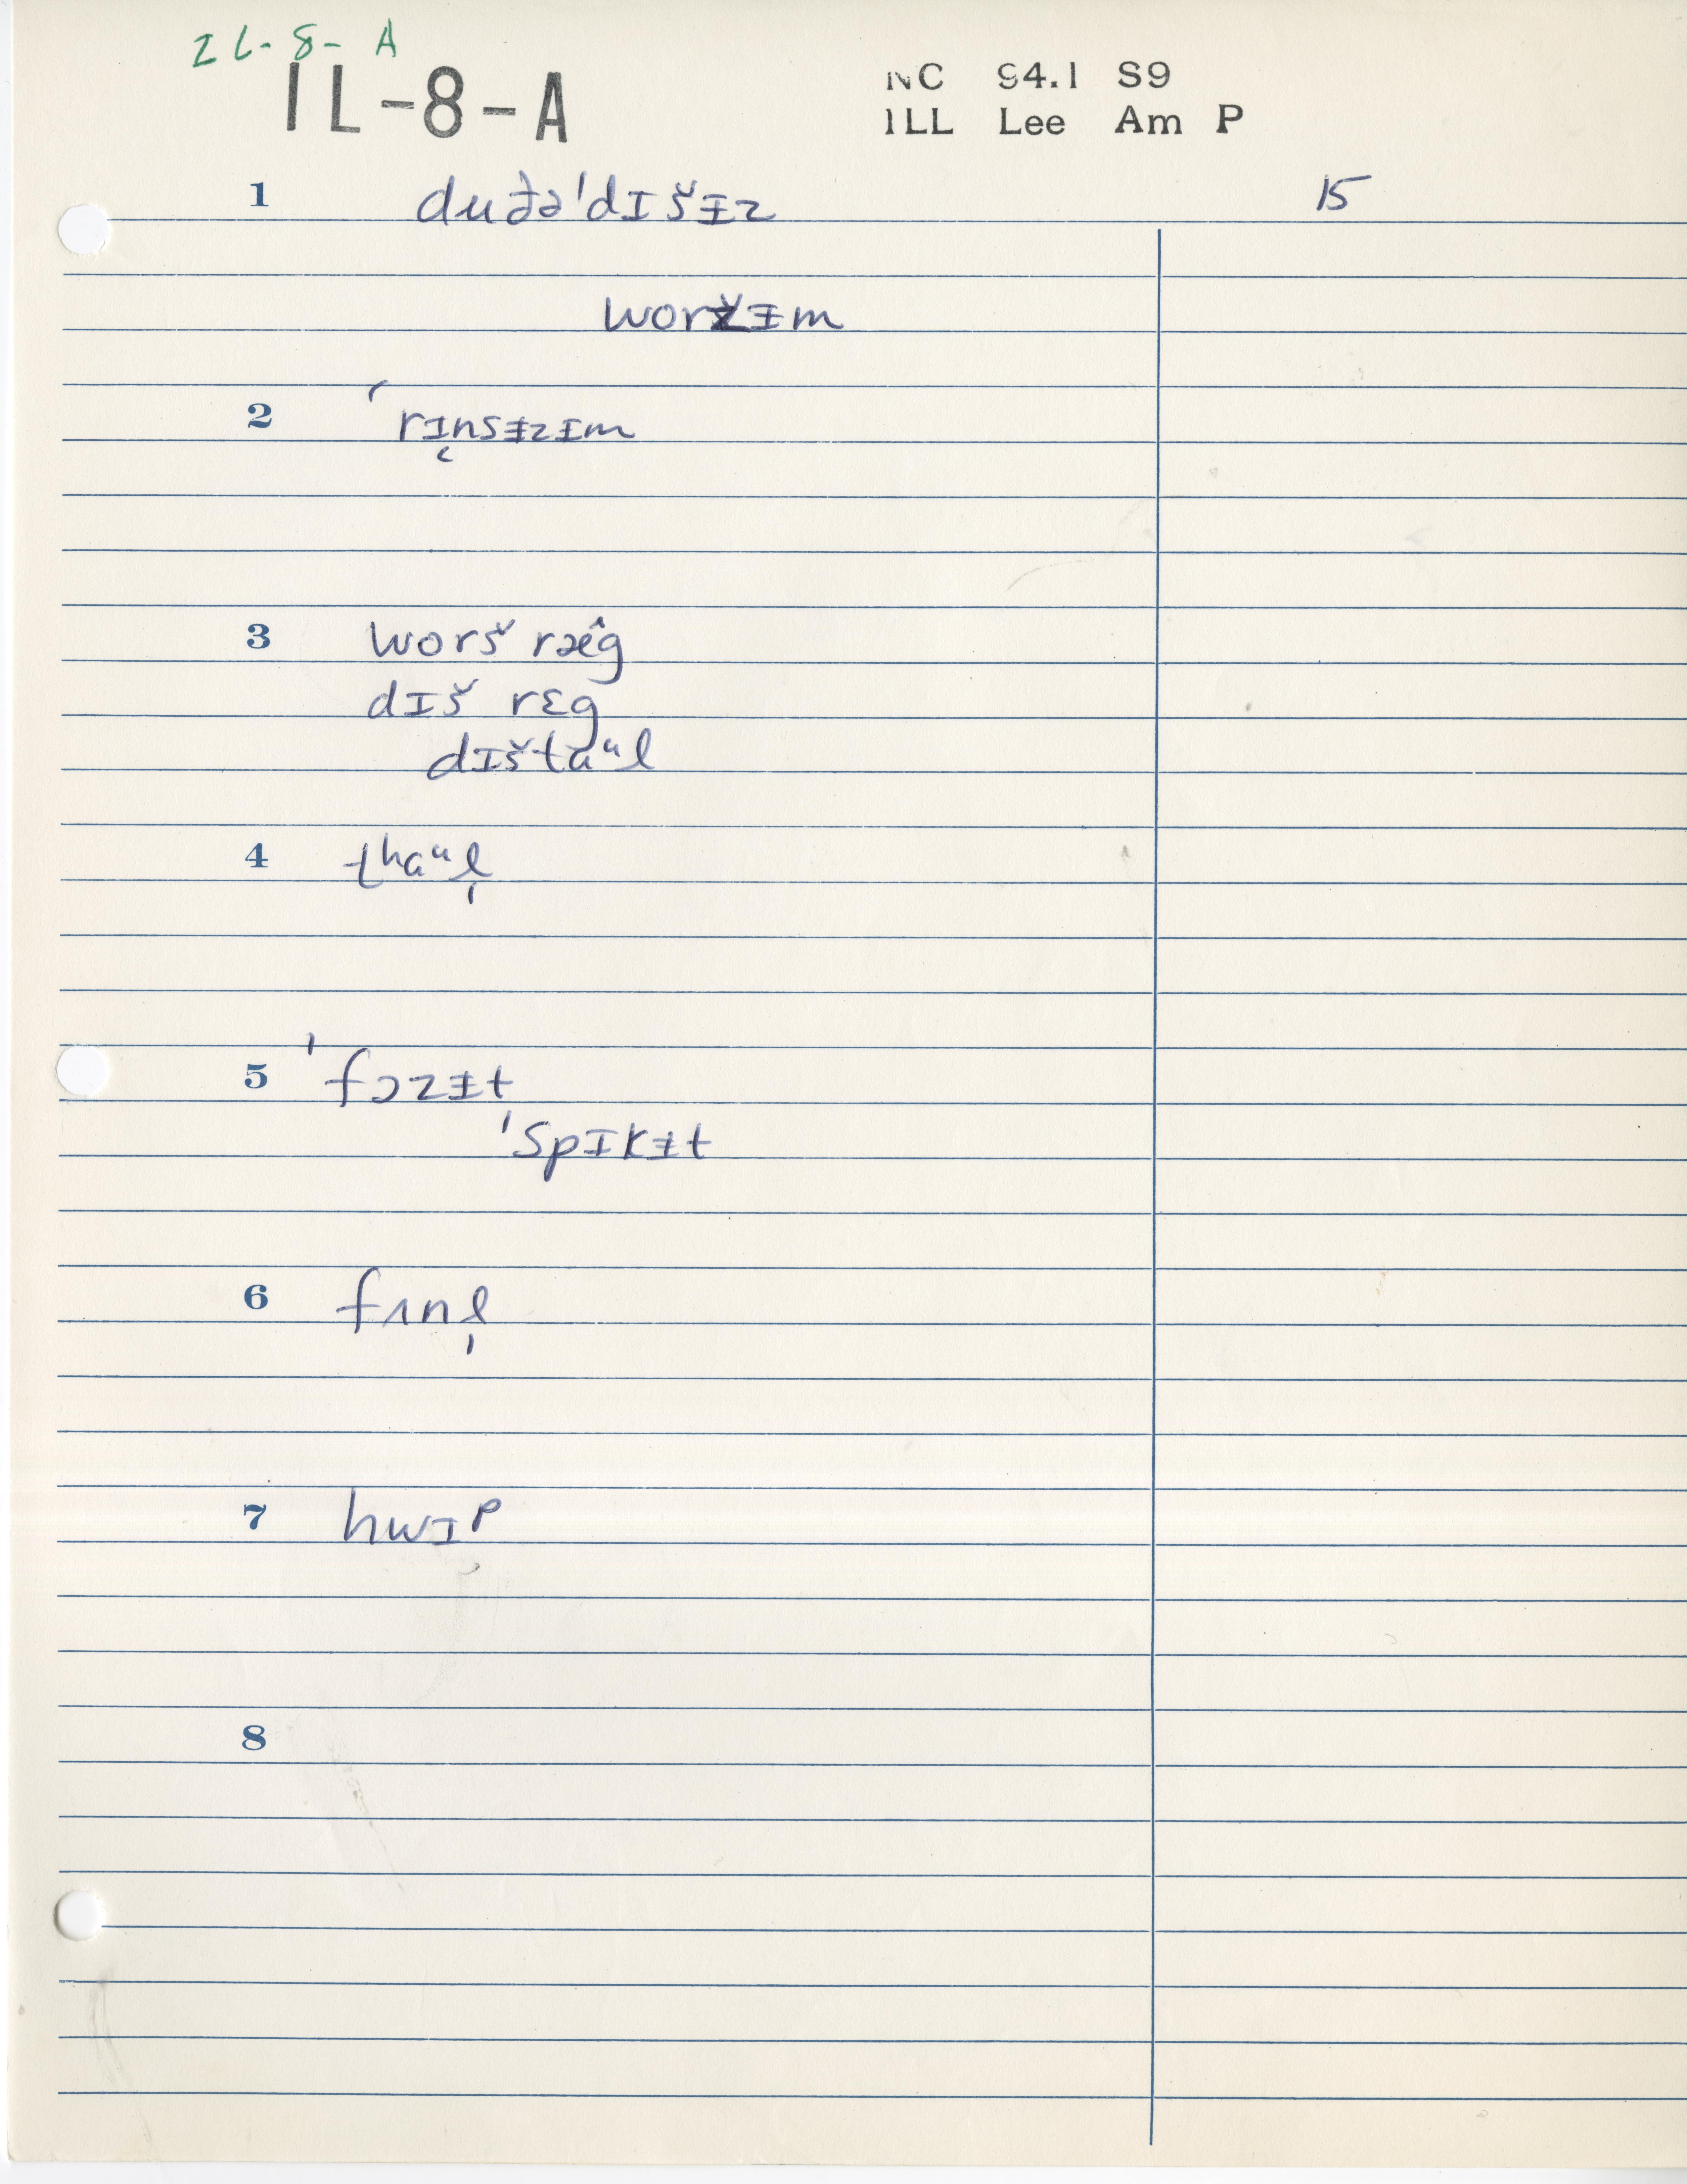 IL-8-A
IL-8-A
NC 94.1 S9
ILL Lee Am P
15
1 duðəˈdɪšɨz
woržɨm
2 ˈrɪ̨nsɨzɨm
3 worš ræ̂g
dɪš rɛg
dɪštaᵘl
4 tʰaᵘl̩
5 ˈfɔzɨt
ˈspɪkɨt
6 fʌnl̩
7 hwɪp
8